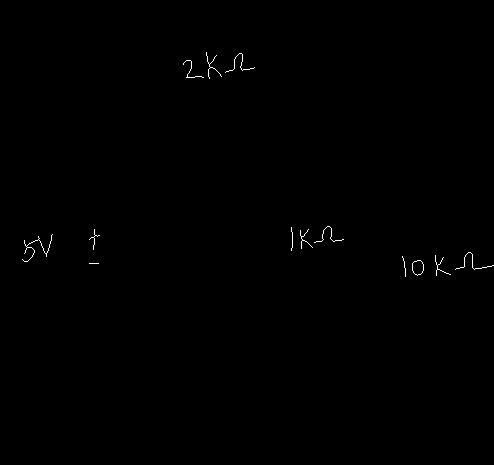 2KΩ
5V +
-
1KΩ
10KΩ